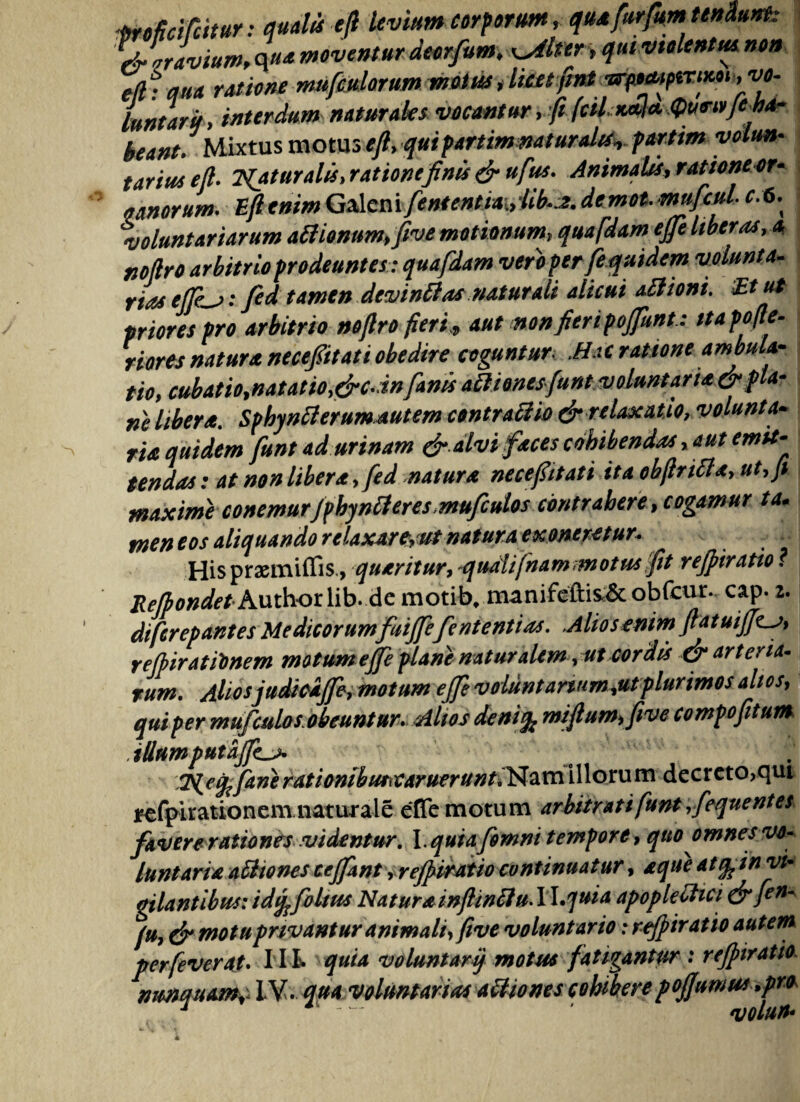 proficiscitur: qualis est levium corporum, quæ sursum tendunt:
& gravium, quæ moventur deorsum. Alter, qui violentus non
est: qua ratione musculorum motus, licet sint προαιρετικοὶ, vo-
luntarij, interdum naturales vocantur, si scil. κατὰ φύσιν se ha-
beant. Mixtus motus est, qui partim naturalis, partim volun-
tarius est. Naturalis, ratione finis & usus. Animalis, ratione or-
ganorum. Est enim Galeni sententia, lib. 2. de mot. muscul. c. 6.
voluntariarum actionum, sive motionum, quasdam esse liberas, à
nostro arbitrio prodeuntes: quasdam verò per se quidem volunta-
rias esse: sed tamen devinctas naturali alicui actioni. Et ut
priores pro arbitrio nostro fieri, aut non fieri possunt: ita poste-
riores naturæ necessitati obedire coguntur. Hac ratione ambula-
tio, cubatio, natatio, &c. in sanis actiones sunt voluntariæ & pla-
nè liberæ. Sphyncterum autem contractio & relaxatio, volunta-
riæ quidem sunt ad urinam & alvi fæces cohibendas, aut emit-
tendas: at non liberæ, sed naturæ necessitati ita obstrictæ, ut, si
maximè conemur sphyncteres musculos contrahere, cogamur ta-
men eos aliquando relaxare, ut natura exoneretur.
His præmissis, quæritur, qualisnam motus sit respiratio?
Respondet Author lib. de motib. manifestis & obscur. cap. 2.
discrepantes Medicorum fuisse sententias. Alios enim statuisse,
respirationem motum esse planè naturalem, ut cordis & arteria-
rum. Alios judicâsse, motum esse voluntarium, ut plurimos alios,
qui per musculos obeuntur. Alios deniq; mistum, sive compositum
illum putâsse.
Neq; sanè rationibus caruerunt. Nam illorum decreto, qui
respirationem naturalē esse motum arbitrati sunt, sequentes
favere rationes videntur. I. quia somni tempore, quo omnes vo-
luntariæ actiones cessant, respiratio continuatur, æquè atq; in vi-
gilantibus: idq; solius Naturæ instinctu. II. quia apoplectici & sen-
su, & motu privantur animali, sive voluntario: respiratio autem
perseverat. III. quia voluntarij motus fatigantur: respiratio
nunquam. IV. qua voluntarias actiones cohibere possumus, pro
volun-